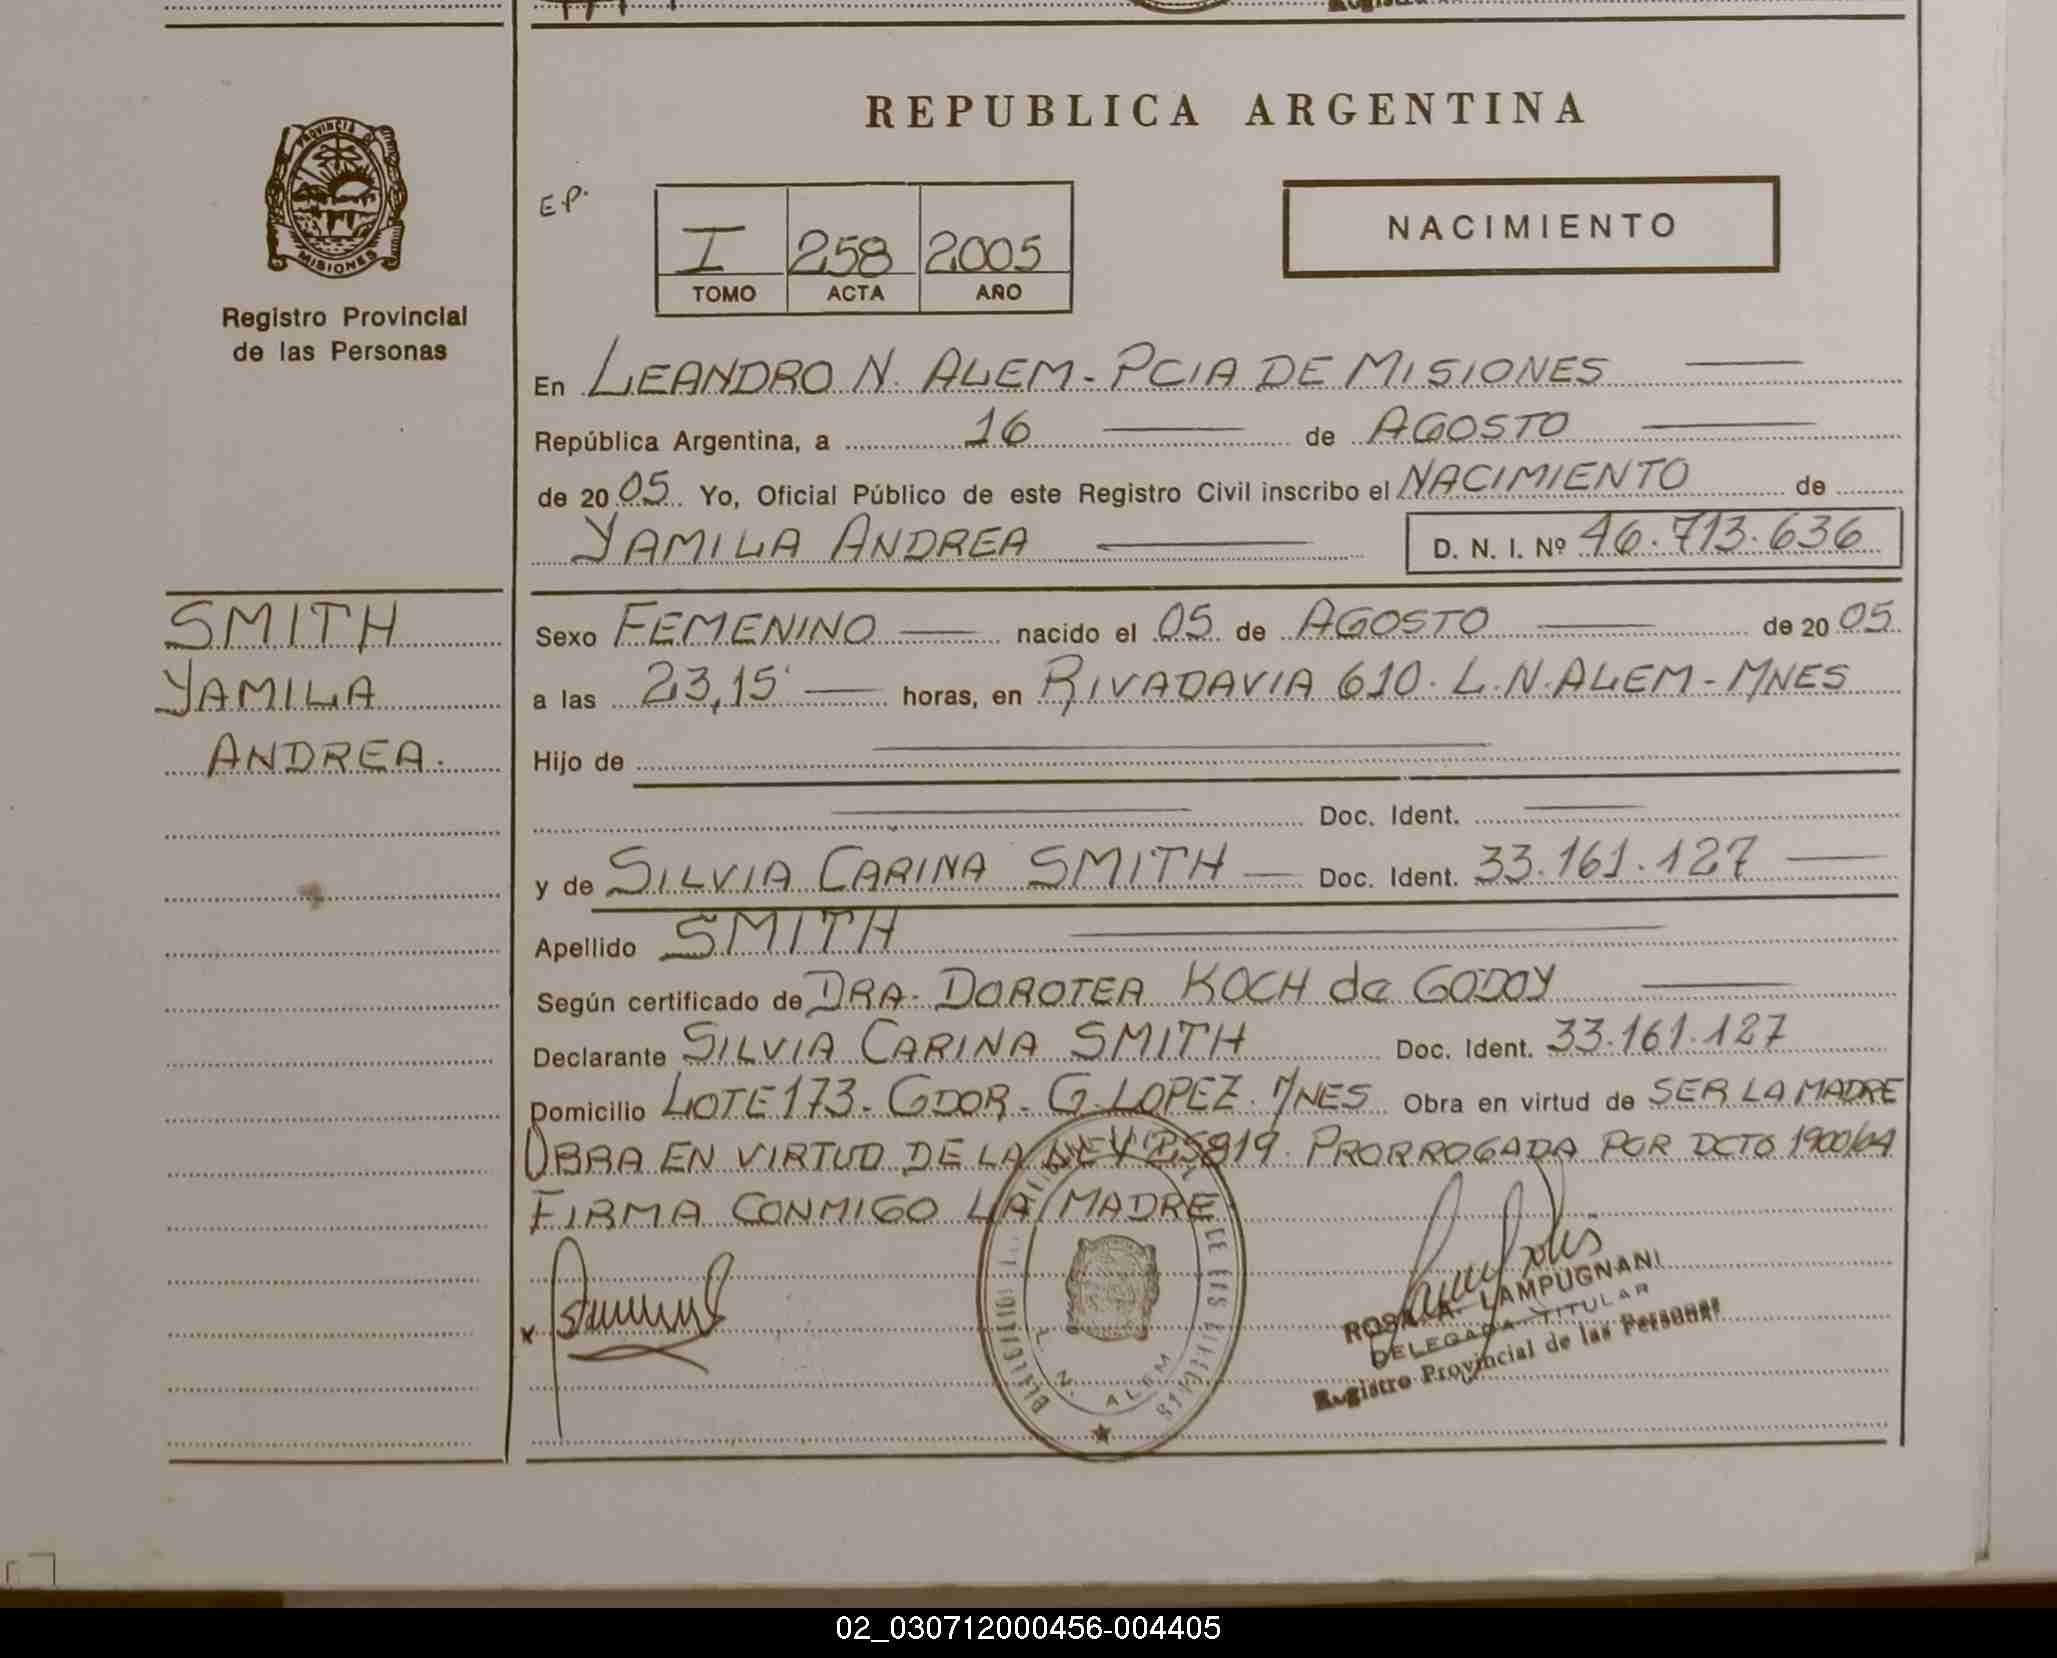 REPUBLICA ARGENTINA
PROVINCIA DE
MISIONES
Registro Provincial
de las Personas
E.P.
I 258 2005
TOMO ACTA AÑO
NACIMIENTO
En LEANDRO N. ALEM - PCIA DE MISIONES
República Argentina, a 16 de AGOSTO
de 2005 Yo, Oficial Público de este Registro Civil inscribo el NACIMIENTO de
YAMILA ANDREA D. N. I. Nº 46.713.636
SMITH
YAMILA
ANDREA.
Sexo FEMENINO nacido el 05 de AGOSTO de 2005
a las 23,15' horas, en RIVADAVIA 610. L.N.ALEM - MNES
Hijo de
Doc. Ident.
y de SILVIA CARINA SMITH Doc. Ident. 33.161.127
Apellido SMITH
Según certificado de DRA. DOROTEA KOCH de GODOY
Declarante SILVIA CARINA SMITH Doc. Ident. 33.161.127
Domicilio LOTE 173 - GDOR. G. LOPEZ. MNES Obra en virtud de SER LA MADRE
OBRA EN VIRTUD DE LA LEY 25819. PRORROGADA POR DCTO 1900/04
FIRMA CONMIGO LA MADRE
x
L. N. ALEM
ROSA A. LAMPUGNANI
DELEGADA TITULAR
Registro Provincial de las Personas
02_030712000456-004405